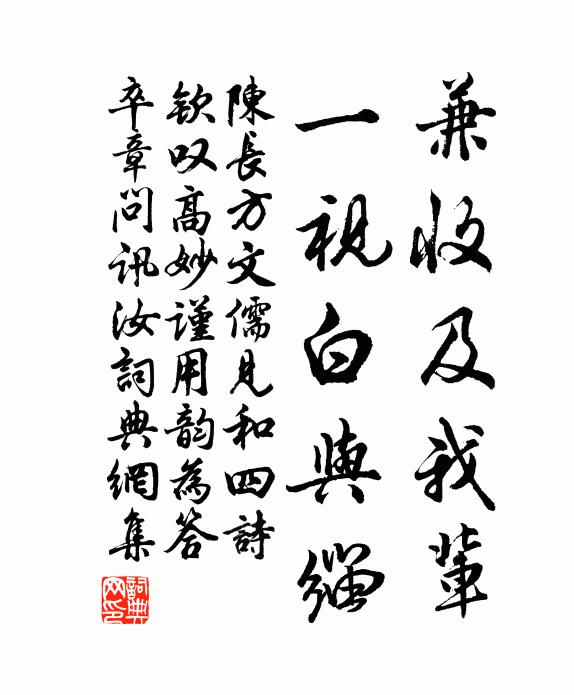 兼收及我輩
一視白與緇
陳長方文儒見和四詩
欽叹高妙謹用韵為答
卒章問訊汝詞典網集
詞典网印